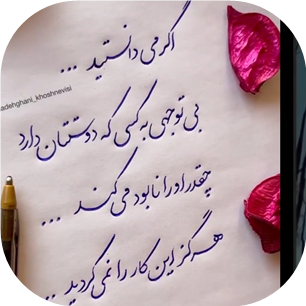 اگر می دانستید ...
adehghani_khoshnevisi
بی توجهی به کسی که دوستتان دارد
چقدر او را نابود می کند ...
هرگز این کار را نمی کردید ...